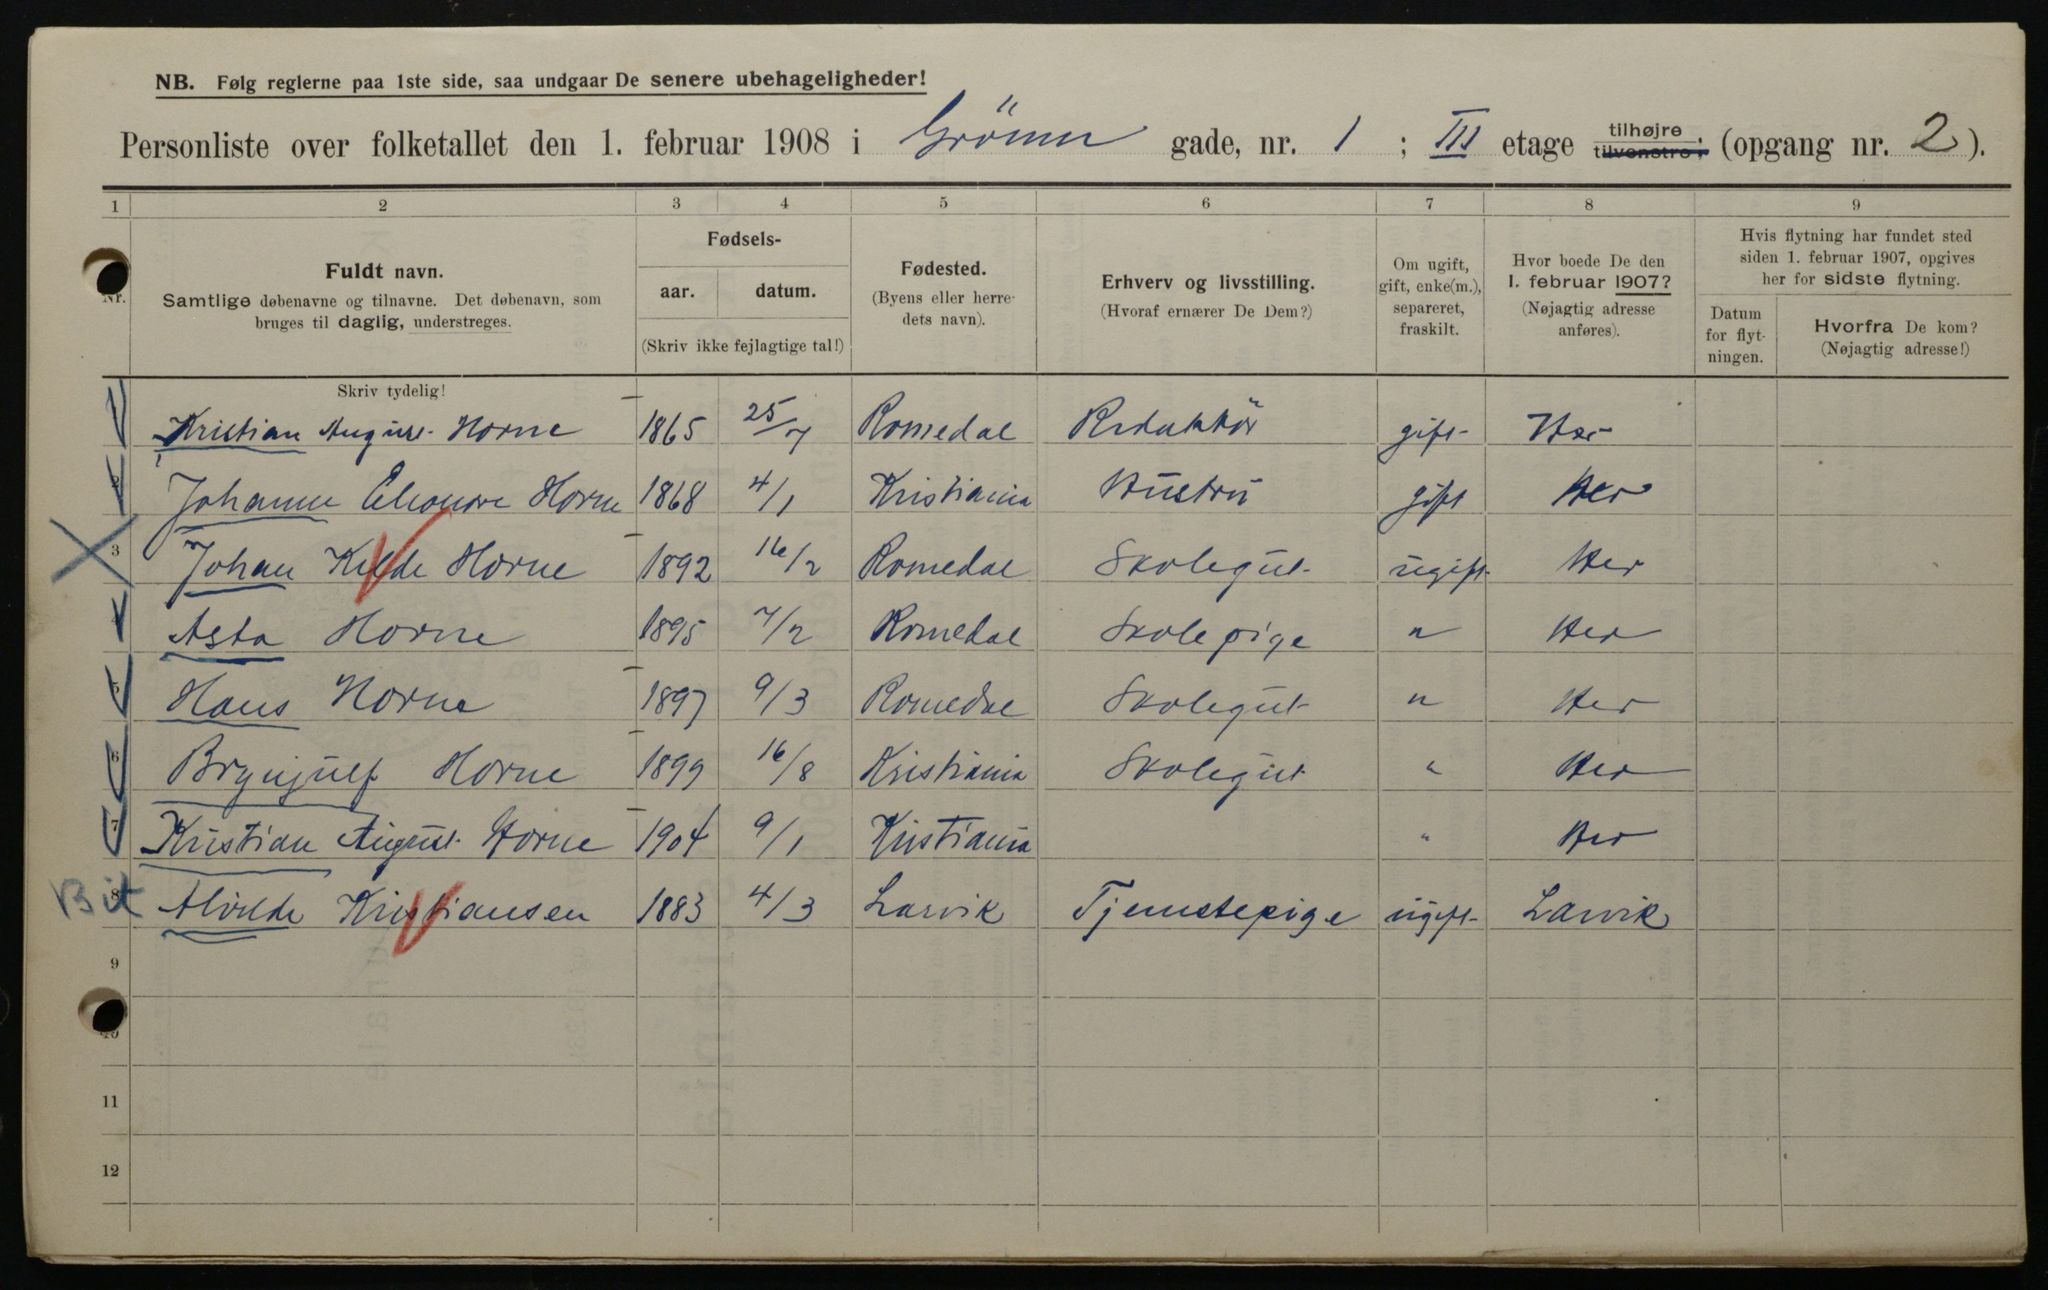 NB. Følg reglerne paa 1ste side, saa undgaar De senere ubehageligheder!
Personliste over folketallet den 1. februar 1908 i Grönne gade, nr. 1 ; III etage tilhøjre tilvenstre; (opgang nr. 2).
1 2 3 4 5 6 7 8 9
Nr. Fuldt navn. Samtlige døbenavne og tilnavne. Det døbenavn, som bruges til daglig, understreges.
Fødsels- aar. datum. (Skriv ikke fejlagtige tal!)
Fødested. (Byens eller herredets navn).
Erhverv og livsstilling. (Hvoraf ernærer De Dem?)
Om ugift, gift, enke(m.), separeret, fraskilt.
Hvor boede De den 1. februar 1907? (Nøjagtig adresse anføres).
Hvis flytning har fundet sted siden 1. februar 1907, opgives her for sidste flytning.
Datum for flytningen. Hvorfra De kom? (Nøjagtig adresse!)
Skriv tydelig!
1 Kristian August Horne 1865 25/7 Romedal Redaktör gift Her
2 Johanne Eleonore Horne 1868 4/1 Kristiania Hustru gift Her
3 Johan Kilde Horne 1892 16/2 Romedal Skolegut ugift Her
4 Asta Horne 1895 7/2 Romedal Skolepige " Her
5 Hans Horne 1897 9/3 Romedal Skolegut " Her
6 Brynjulf Horne 1899 16/8 Kristiania Skolegut " Her
7 Kristian August Horne 1904 9/1 Kristiania " Her
8 Alvilde Kristiansen 1883 4/3 Larvik Tjenestepige ugift Larvik
9
10
11
12